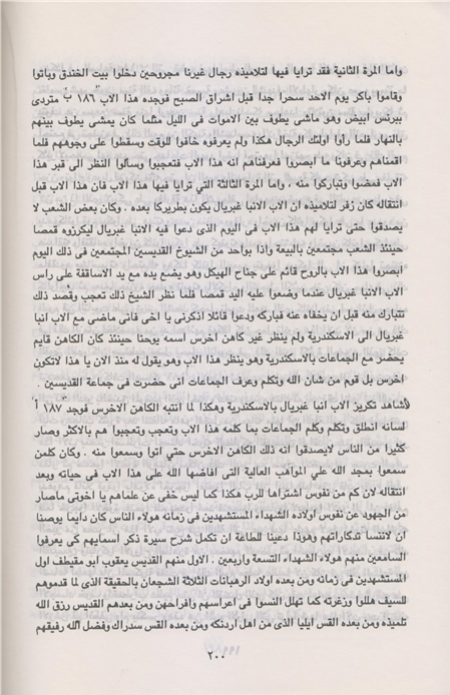 واما المرة الثانية فقد ترايا فيها لتلاميذه رجال غيرنا مجروحين دخلوا بيت الخندق وباتوا
وقاموا باكر يوم الاحد سحرا جدا قبل اشراق الصبح فوجده هذا الاب ١٨٦ ب متردى
ببرنس ابيض وهو ماشى يطوف بين الاموات فى الليل مثلما كان يمشى يطوف بينهم
بالنهار فلما رأوا اولئك الرجال هكذا ولم يعرفوه خافوا للوقت وسقطوا على وجوههم فلما
اقمناهم وعرفونا ما ابصروا فعرفناهم انه هذا الاب فتعجبوا وسألوا النظر الى قبر هذا
الاب فمضوا وتباركوا منه . واما المرة الثالثة التي ترايا فيها هذا الاب فان هذا الاب قبل
انتقاله كان زفر لتلاميذه ان الاب الانبا غبريال يكون بطريركا بعده . وكان بعض الشعب لا
يصدقوا حتى ترايا لهم هذا الاب فى اليوم الذى دعوا فيه الانبا غبريال ليكرزوه قمصا
حينئذ الشعب مجتمعين بالبيعة واذا بواحد من الشيوخ القديسين المجتمعين فى ذلك اليوم
ابصروا هذا الاب بالروح قائم على جناح الهيكل وهو يضع يده مع يد الاساقفة على راس
الاب الانبا غبريال عندما وضعوا عليه اليد قمصا فلما نظر الشيخ ذلك تعجب وقصد ذلك
تتبارك منه قبل ان يخفاه عنه فباركه ودعوا قائلا اذكرنى يا اخى فانى ماضى مع الاب انبا
غبريال الى الاسكندرية ولم ينظر غير كاهن اخرس اسمه يوحنا حينئذ كان الكاهن قايم
يحضر مع الجماعات بالاسكندرية وهو ينظر هذا الاب وهو يقول له منذ الان يا هذا لاتكون
اخرس بل قوم من شان الله وتكلم وعرف الجماعات انى حضرت فى جماعة القديسين .
لأشاهد تكريز الاب انبا غبريال بالاسكندرية وهكذا لما انتبه الكاهن الاخرس فوجد ١٨٧ أ
لسانه انطلق وتكلم وكلم الجماعات بما كلمه هذا الاب وتعجب وتعجبوا هم بالاكثر وصار
كثيرا من الناس لايصدقوا انه ذلك الكاهن الاخرس حتي اتوا وسمعوا منه . وكان كلمن
سمعوا بمجد الله علي المواهب العالية التى افاضها الله على هذا الاب فى حياته وبعد
انتقاله لان كم من نفوس اشتراها للرب هكذا كما ليس خفى عن علماهم يا اخوتى ماصار
من الجهود عن نفوس اولاده الشهداء المستشهدين فى زمانه هولاء الناس كان دايما يوصينا
ان لاننسا تذكاراتهم وهوذا دعينا للطاعة ان تكمل شرح سيرة ذكر اسمايهم كى يعرفوا
السامعين منهم هولاء الشهداء التسعة واربعين . الاول منهم القديس يعقوب ابو مقيطف اول
المستشهدين فى زمانه ومن بعده اولاد الرهبانات الثلاثة الشجعان بالحقيقة الذى لما قدموهم
للسيف هللوا وزغرته كما تهلل النسوا فى اعراسهم وافراحهن ومن بعدهم القديس رزق الله
تلميذه ومن بعده القس ايليا الذى من اهل اردنكه ومن بعده القس سدراك وفضل الله رفيقهم
٢٠٠